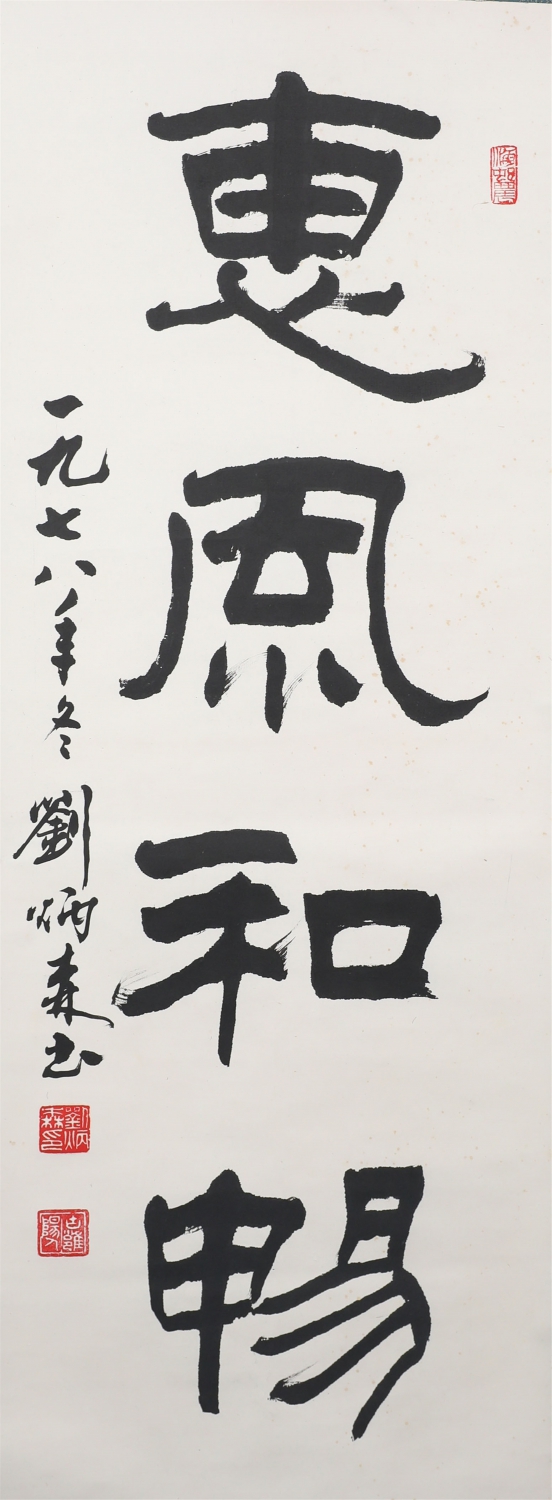 惠風和暢
一九七八年冬劉炳森书
劉炳森印